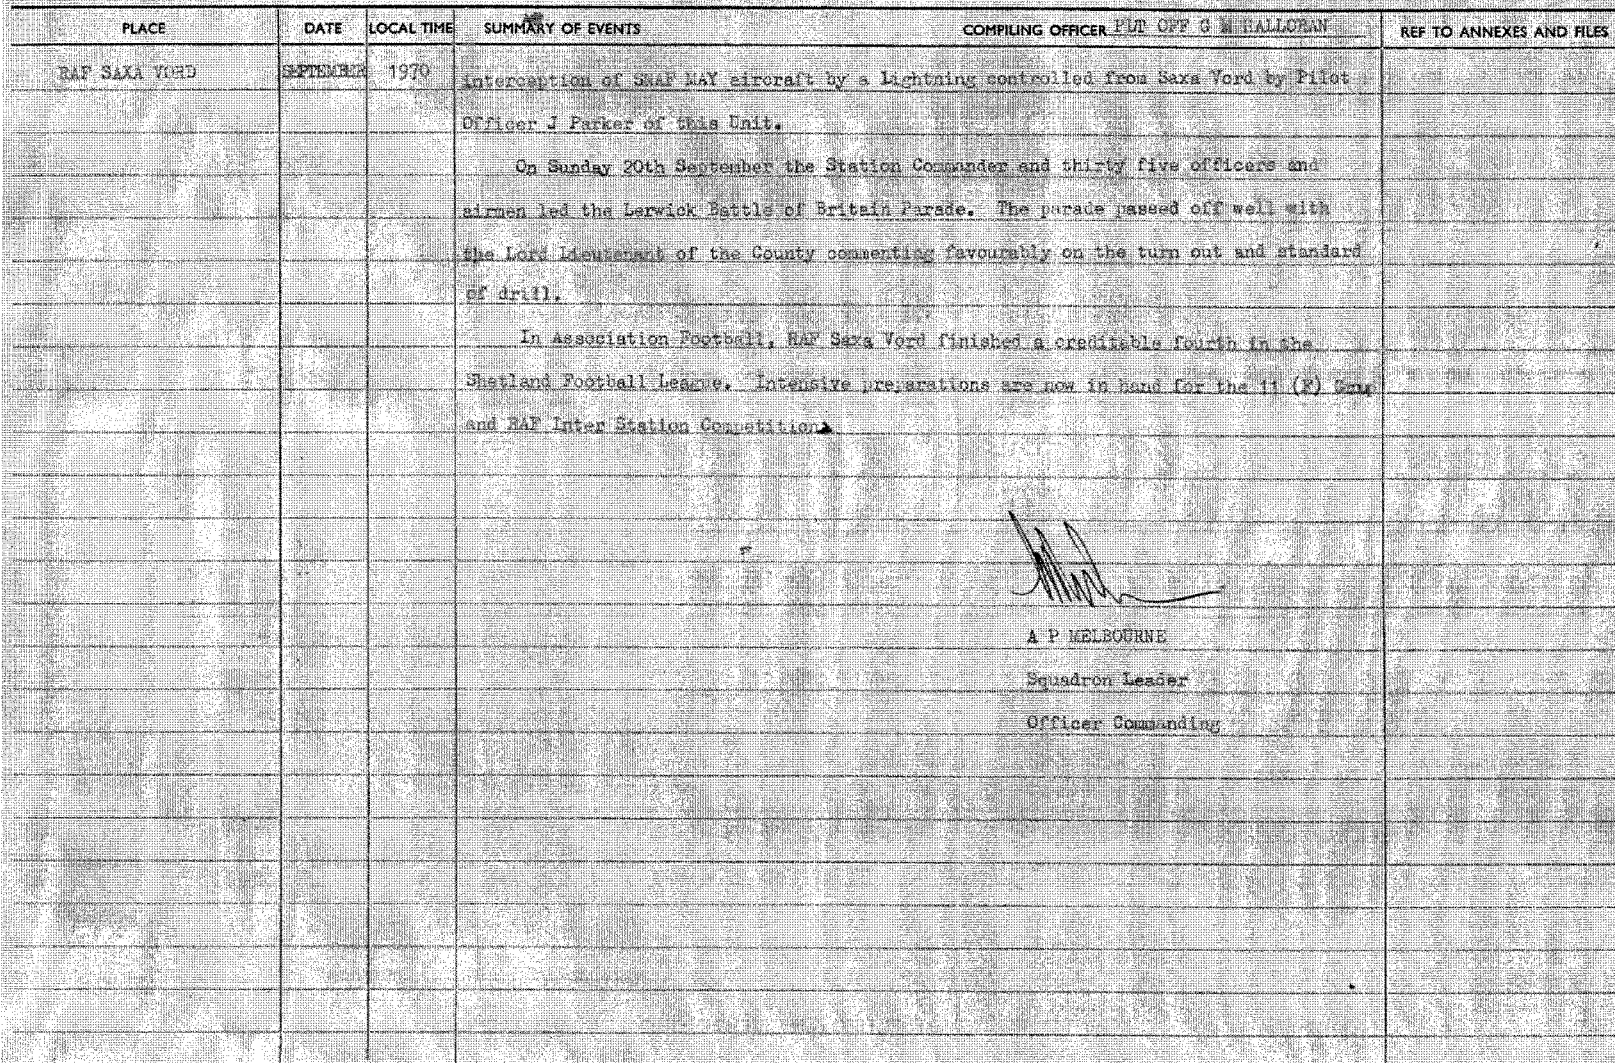 PLACE DATE LOCAL TIME SUMMARY OF EVENTS COMPILING OFFICER PLT OFF G M HALLORAN REF TO ANNEXES AND FILES
RAF SAXA VORD SEPTEMBER 1970 interception of SNAP MAY aircraft by a Lightning controlled from Saxa Vord by Pilot
Officer J Parker of this Unit.
On Sunday 20th September the Station Commander and thirty five officers and
airmen led the Lerwick Battle of Britain Parade. The parade passed off well with
the Lord Lieutenant of the County commenting favourably on the turn out and standard
of drill.
In Association Football, RAF Saxa Vord finished a creditable fourth in the
Shetland Football League. Intensive preparations are now in hand for the 11 (F) Group
and RAF Inter Station Competitions
A P MELBOURNE
Squadron Leader
Officer Commanding